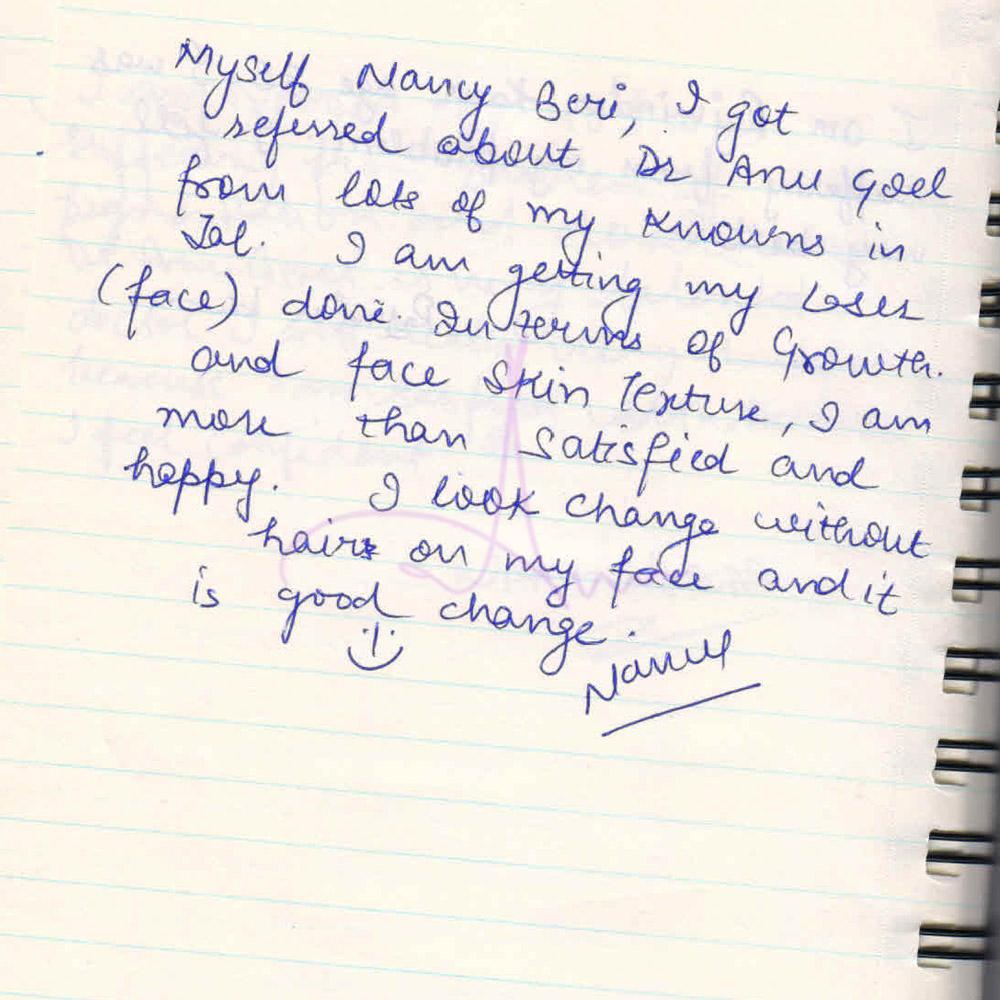 Myself Nancy Beri, I got
referred about Dr Anu Goel
from lots of my knowns in
Jal. I am getting my Laser
(face) done. In terms of Growth.
and face Skin Texture, I am
more than satisfied and
happy. I look change without
hairs on my face and it
is good change.
Nancy